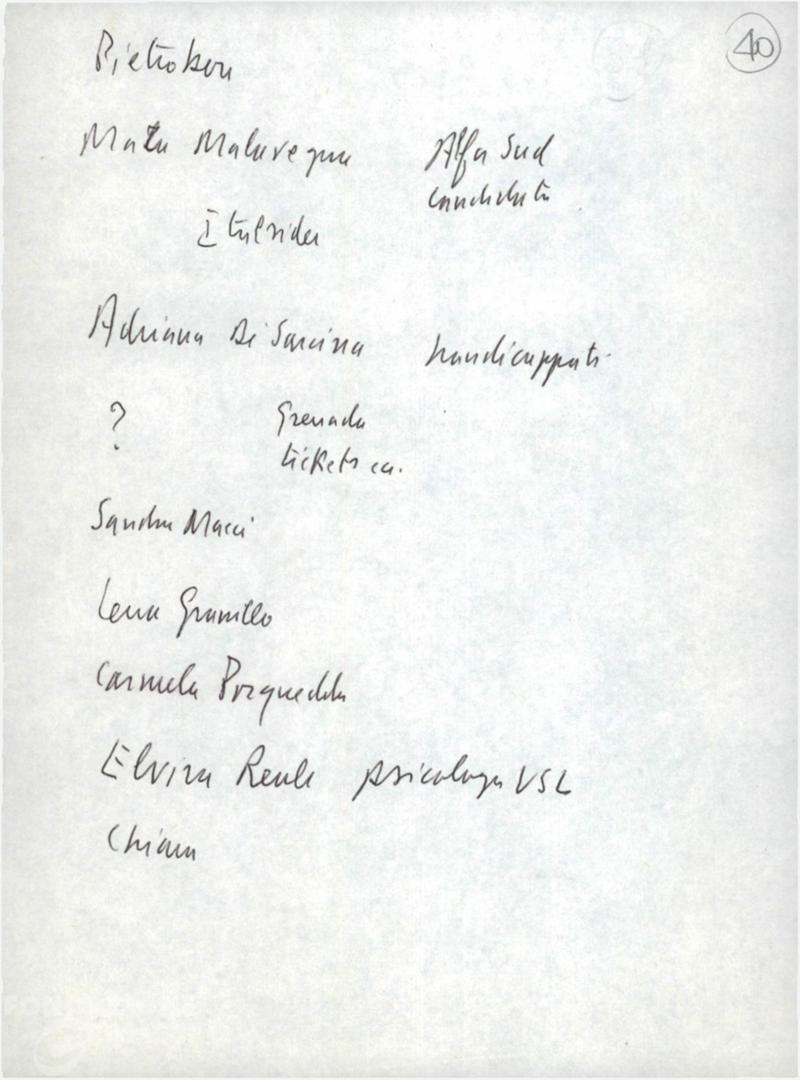 40
Pietrobon
Mata Malavegna Alfa Sud
candidata
Italsider
Adriana Di Sarcina handicappati
? Grenada
tickets ca.
Sandra Macci
Lena Granillo
Carmela Porquedda
Elvira Reale psicologa USL
Chiara